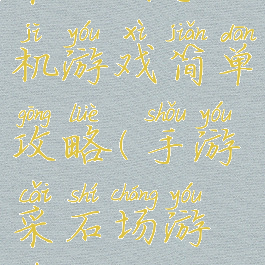 jī yóu xì jiǎn dān
机游戏简单
gōng lüè shǒu yóu
攻略(手游
cǎi shí chǎng yóu
采石场游